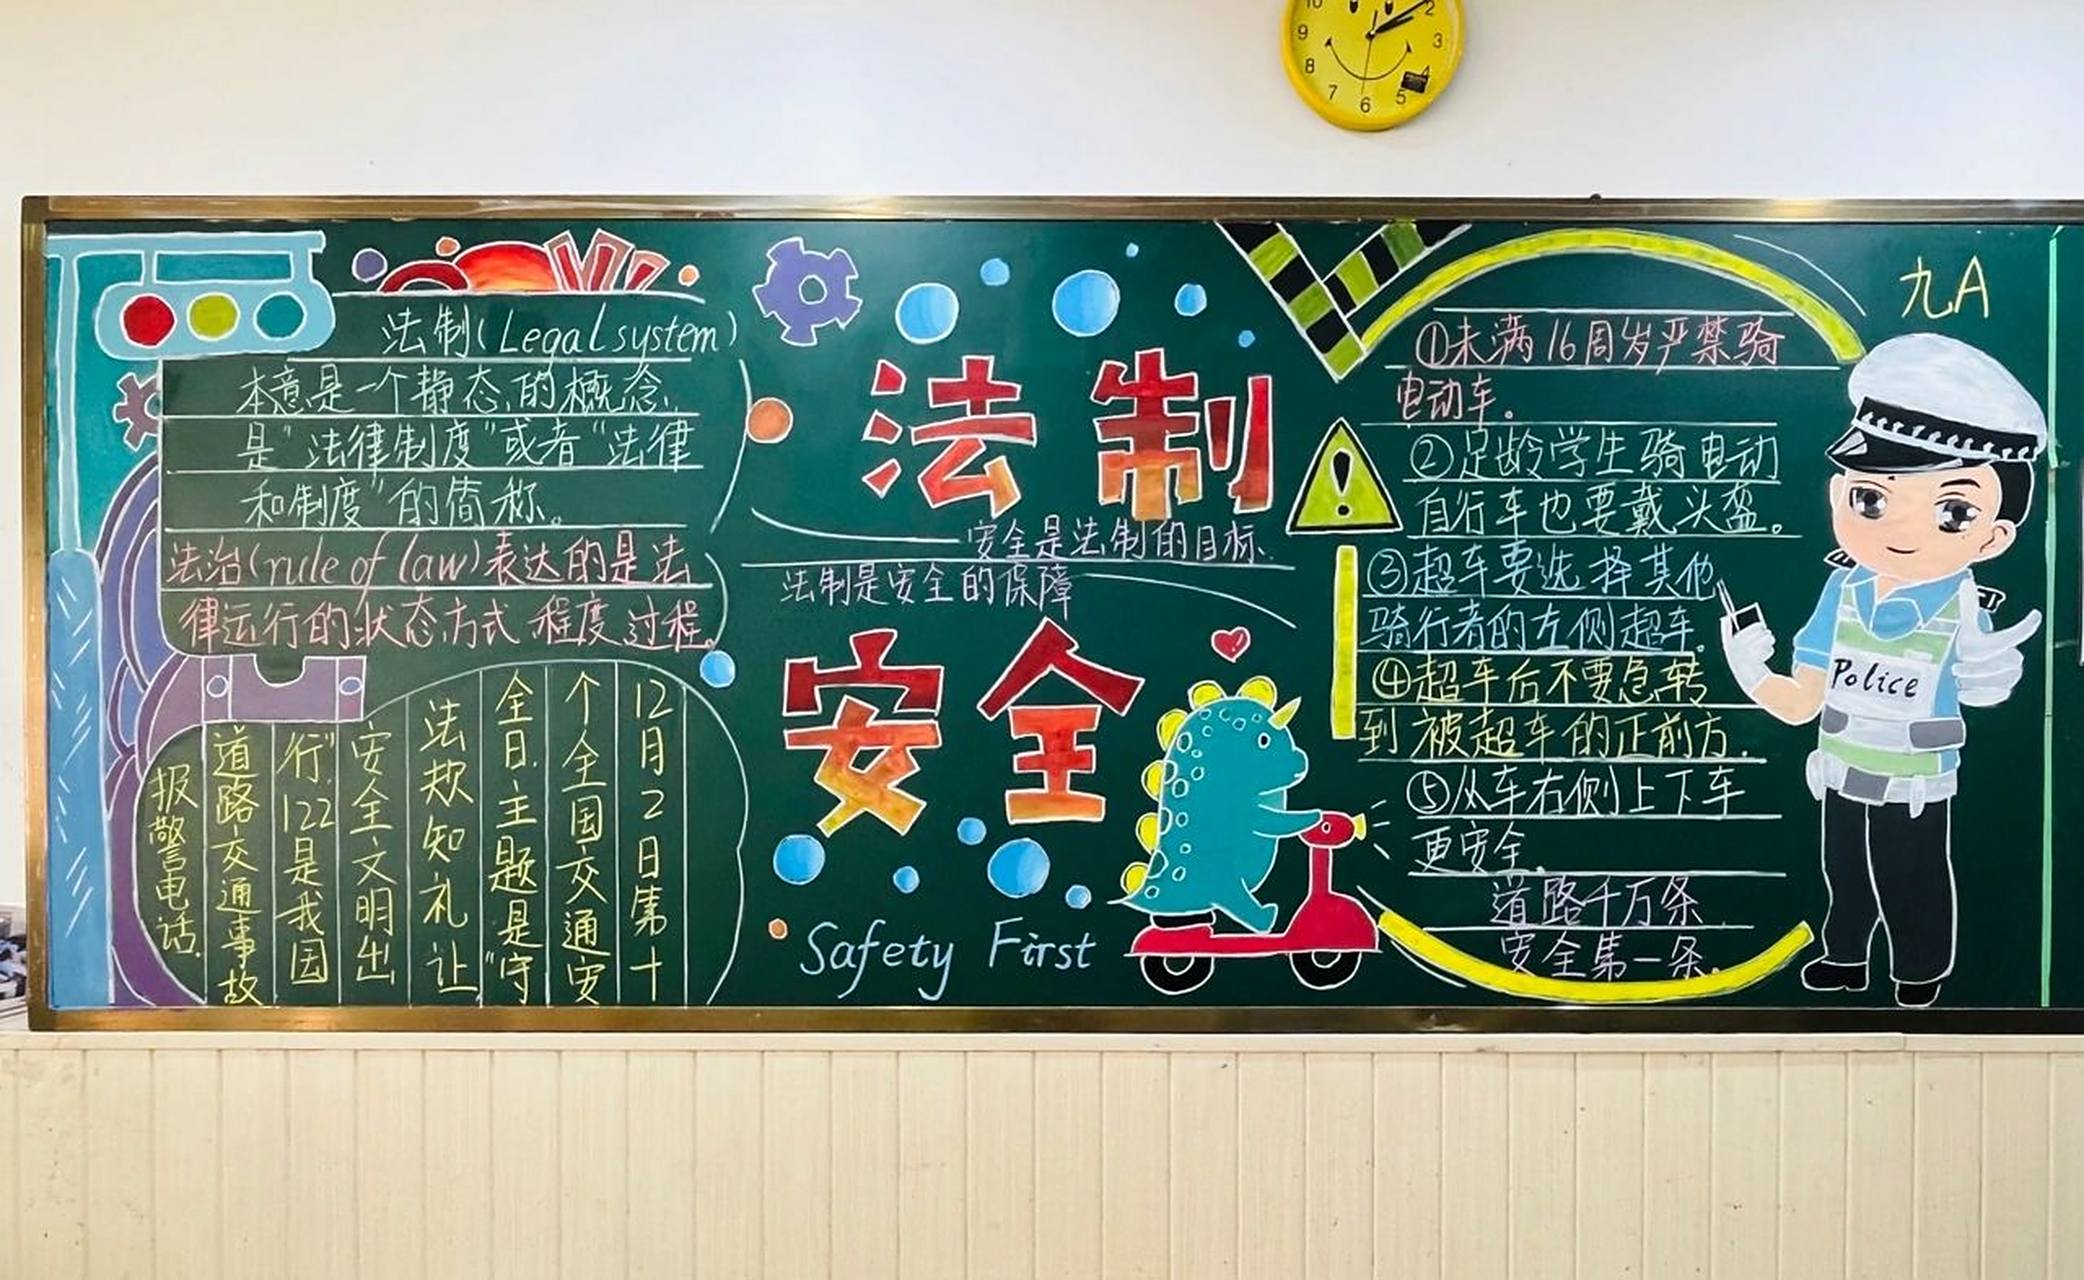 法制(Legal system)
本意是一个静态的概念,
是"法律制度"或者"法律
和制度"的简称。
法治(rule of law)表达的是法
律运行的状态方式 程度 过程。
12月2日第十
个全国交通安
全日.主题是"守
法规知礼让
安全文明出
行".122是我国
道路交通事故
报警电话.
法制
安全是法制的目标.
法制是安全的保障
安全
Safety First
①未满16周岁严禁骑
电动车。
②足龄学生骑电动
自行车也要戴头盔。
③超车要选择其他
骑行者的左侧超车.
④超车后不要急转
到被超车的正前方.
⑤从车右侧上下车
更安全.
道路千万条
安全第一条.
九A
Police
10
2
9
3
8
4
7
6
5